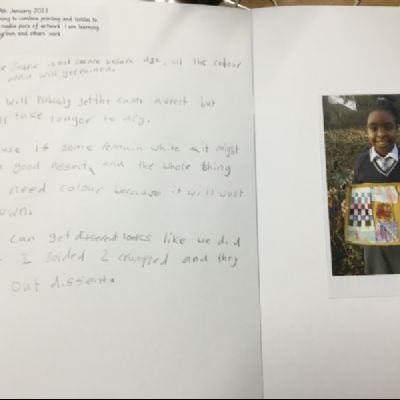 9th January 2023
ning to combine printing and textiles to
media piece of artwork. I am learning
and others' work.
fabric is not secure before dye, all the colour
will get ruined.
will Probably get the same affect but
take longer to dry.
use if some remain white it might
good affect, and the whole thing
need colour because it will just
own.
can get different looks like we did
I folded 2 crumpled and they
out different.